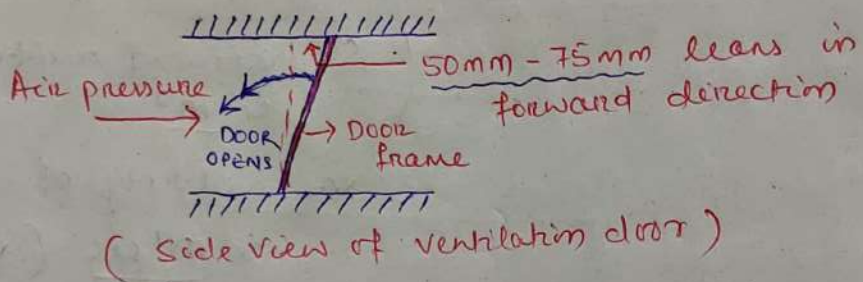 50mm - 75mm leans in
forward direction
Air pressure
DOOR
OPENS
DOOR
frame
( Side view of ventilation door )